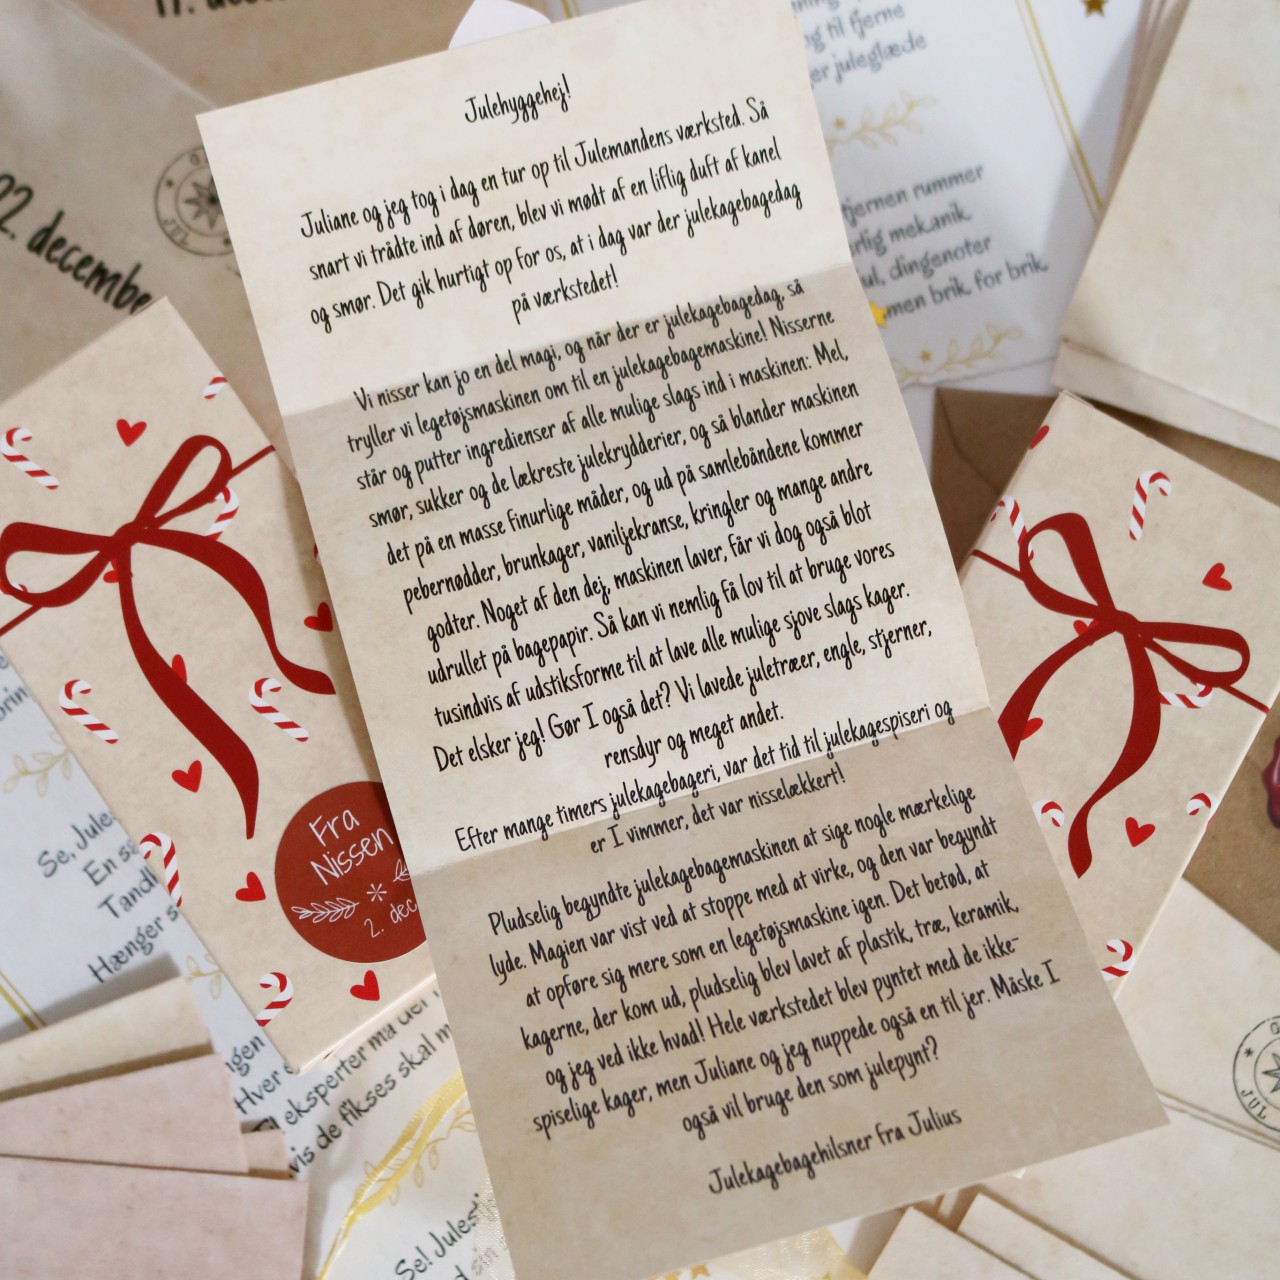 Julehyggehej!
Juliane og jeg tog i dag en tur op til Julemandens værksted. Så
snart vi trådte ind af døren, blev vi mødt af en liflig duft af kanel
og smør. Det gik hurtigt op for os, at i dag var der julekagebagedag
på værkstedet!
Vi nisser kan jo en del magi, og når der er julekagebagedag, så
tryller vi legetøjsmaskinen om til en julekagebagemaskine! Nisserne
står og putter ingredienser af alle mulige slags ind i maskinen: Mel,
smør, sukker og de lækreste julekrydderier, og så blander maskinen
det på en masse finurlige måder, og ud på samlebåndene kommer
pebernødder, brunkager, vaniljekranse, kringler og mange andre
godter. Noget af den dej, maskinen laver, får vi dog også blot
udrullet på bagepapir. Så kan vi nemlig få lov til at bruge vores
tusindvis af udstiksforme til at lave alle mulige sjove slags kager.
Det elsker jeg! Gør I også det? Vi lavede juletræer, engle, stjerner,
rensdyr og meget andet.
Efter mange timers julekagebageri, var det tid til julekagespiseri og
er I vimmer, det var nisselækkert!
Pludselig begyndte julekagebagemaskinen at sige nogle mærkelige
lyde. Magien var vist ved at stoppe med at virke, og den var begyndt
at opføre sig mere som en legetøjsmaskine igen. Det betød, at
kagerne, der kom ud, pludselig blev lavet af plastik, træ, keramik,
og jeg ved ikke hvad! Hele værkstedet blev pyntet med de ikke-
spiselige kager, men Juliane og jeg nuppede også en til jer. Måske I
også vil bruge den som julepynt?
Julekagebagehilsner fra Julius
22. december
Fra
Nissen
2. dec
17.
og til fjerne
er juleglæde
fjernen rummer
mekanik
dingenoter
men brik for brik
Se, Jule
En
Tandl
Hænger
Hver
eksperter må
vis de fikses skal
Se! Julest
JUL
JUL